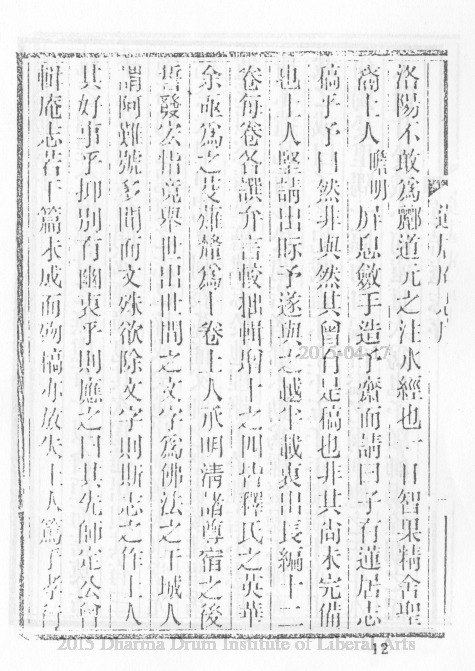 洛陽不敢為酈道元之注水經也一日智果精舍聖
裔上人瞻明屏息斂手造予齋而請曰子有蓮居志
稿乎予曰然非與然其曾有是稿也非其尚未完備
也上人堅請出眎予遂與之越半載裒出長編十二
卷每卷各譔弁言較拙輯增十之四皆釋氏之英華
余亟為之芟薙釐為十卷上人承明清諸尊宿之後
誓發宏悟竟舉世出世間之文字為佛法之干城人
謂阿難號多聞而文殊欲除文字則斯志之作上人
其好事乎抑別有幽衷乎則應之曰其先師定公曾
輯庵志若干篇未成而歿稿亦放失上人篤于孝行
2015-04-17
12
2015 Dharma Drum Institute of Liberal Arts